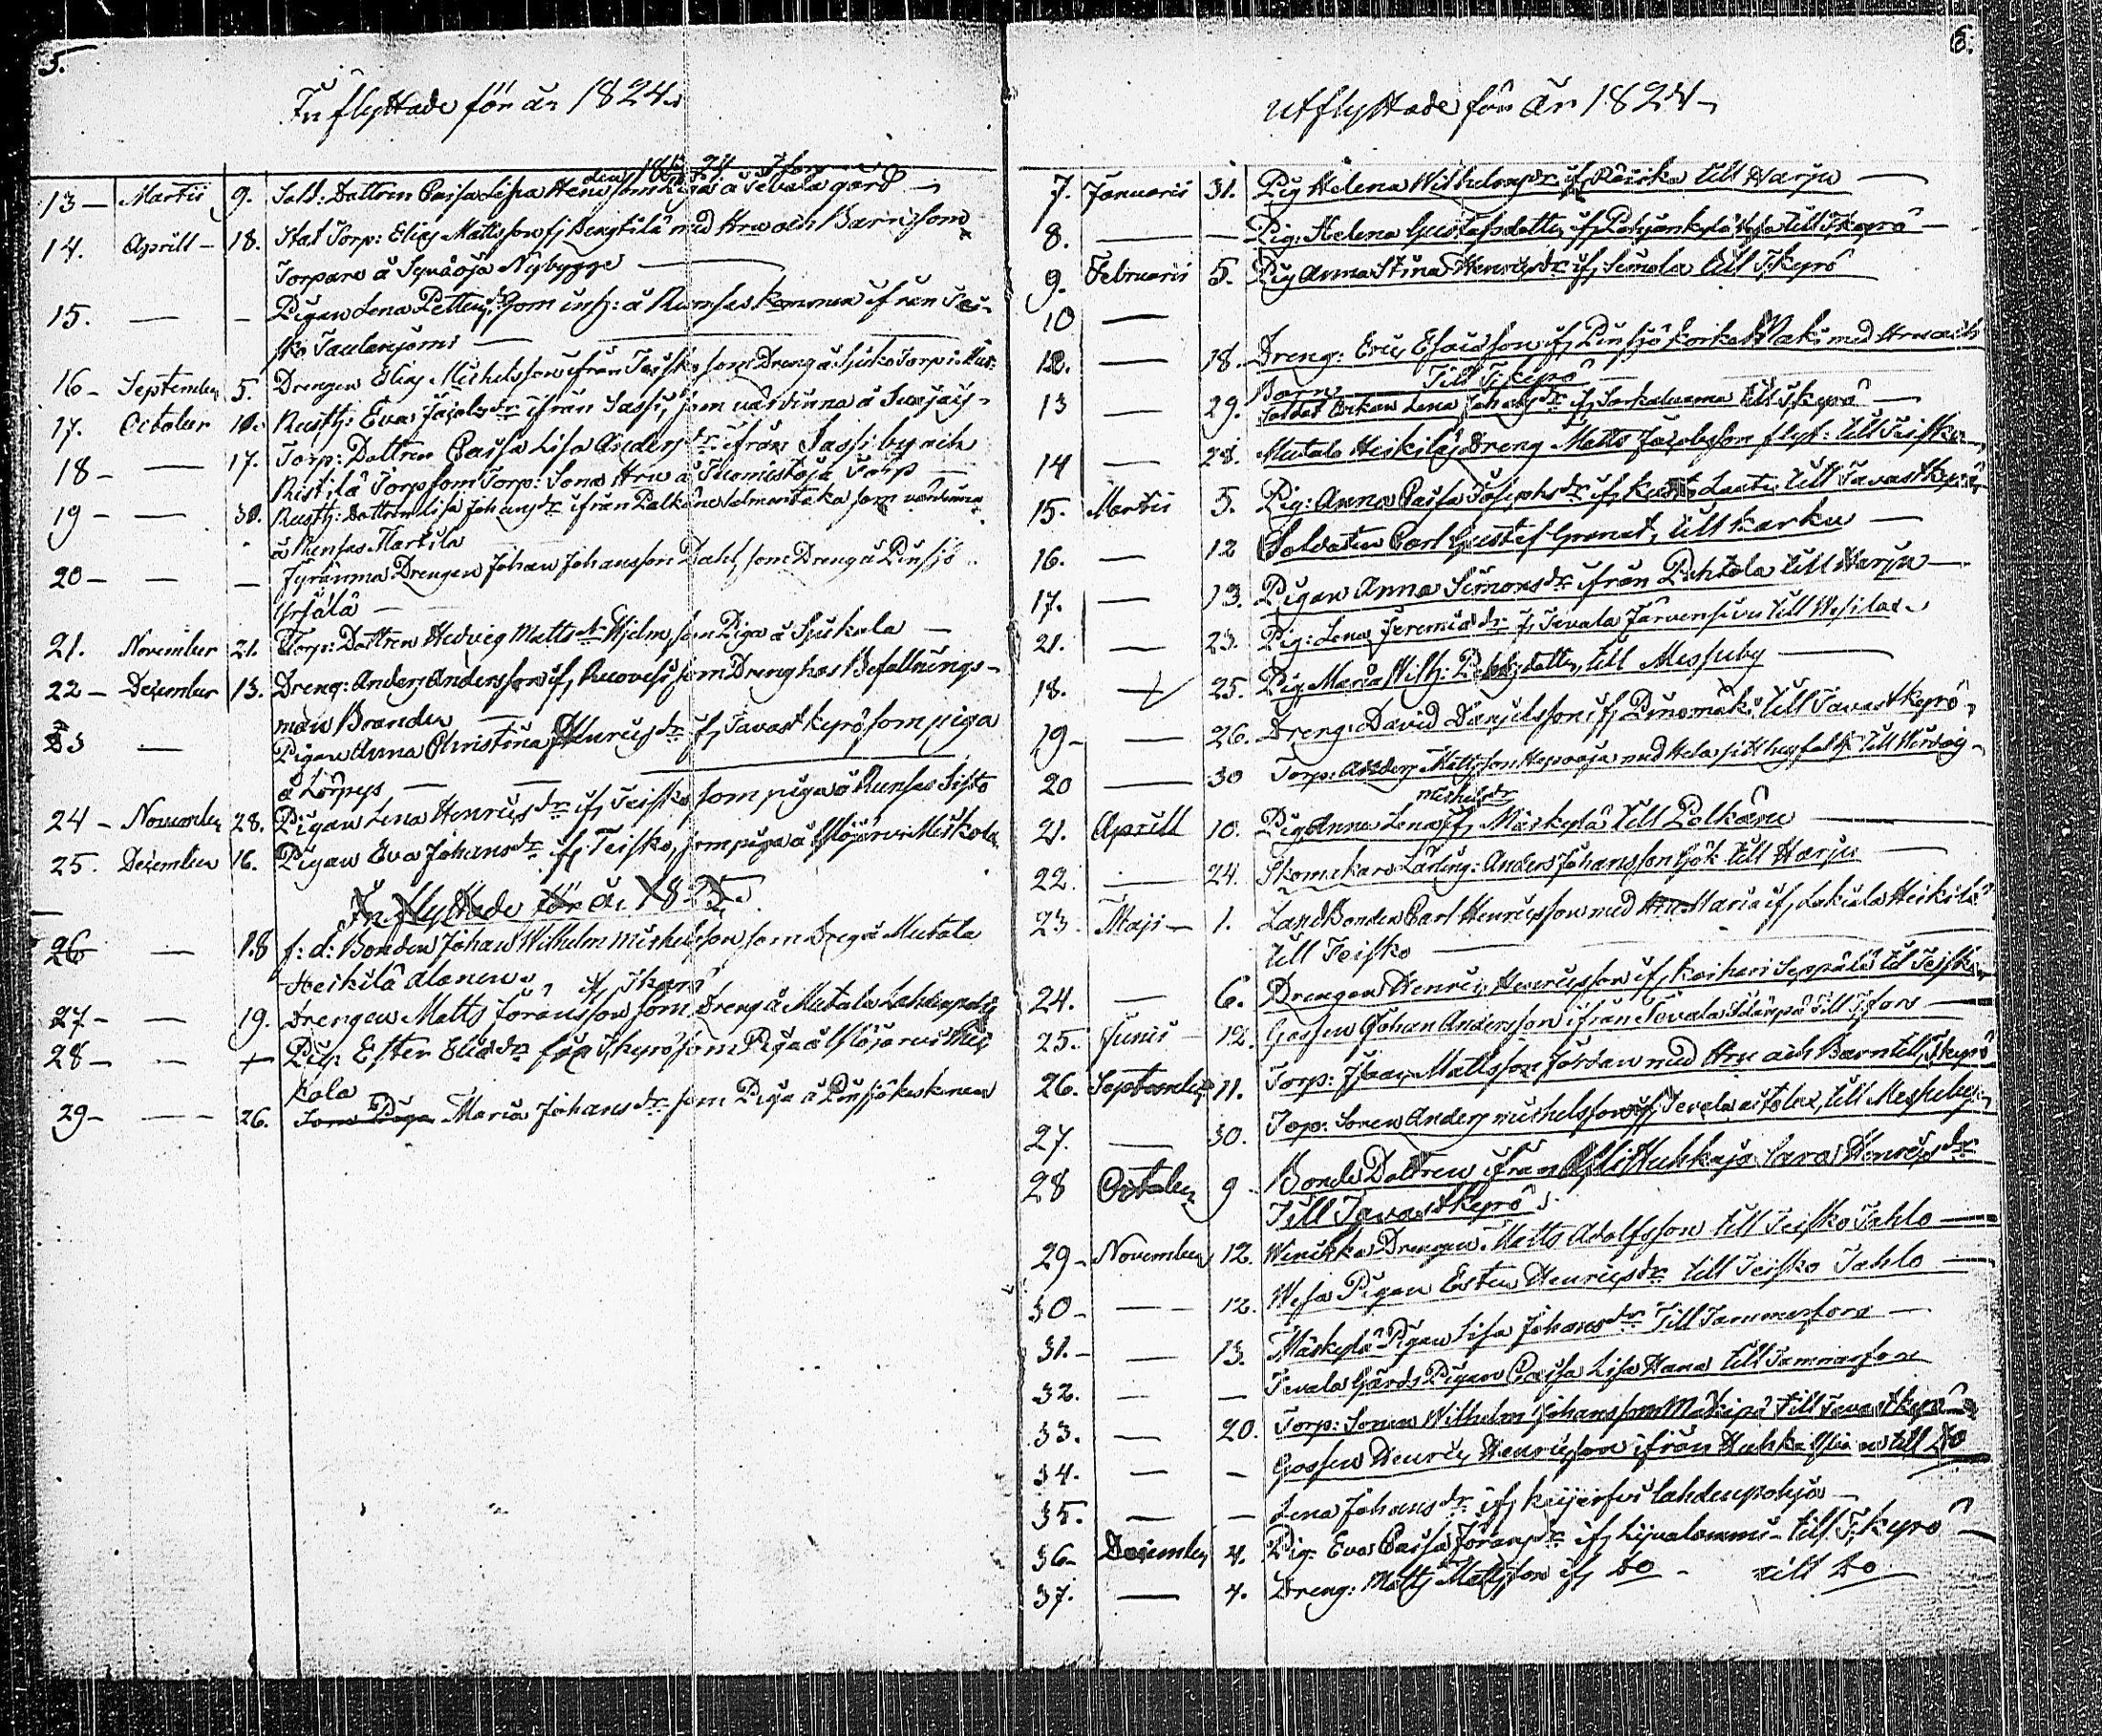 5.
Inflyttade för år 1824.
13 — Martii 9. Sold: Dottren Caisa Lisa som Piga å Tevala gård —
14. Aprill — 18. Stat Torp: Elias Mattsson ifr Bengtilä med Hru och Barn, som
Torpare å Nybygge —
15. — — Pigan Lena Pettersdr som inh: å Runsas kommen ifrån Tei-
sko Taulanjomi —
16 — September 5. Drengen Elias Michelsson ifrån Teisko som Dreng å
17. October 10. Rusth: Eva Jacobsdr ifrån Sassi, som värdinna å
18 — — 17. Torp: Dottren Caisa Lisa Andersdr ifrån Sassi by och
Ristilä Torp som Torp: Sons Hru å Torp —
19 — — 30. Rusth: Dottren Lisa Johansdr ifrån Palkäne som värdinna
å Runsas Markila
20 — — — Johan Johansson Dahl, som Dreng å Pinsjö
Yrjälä —
21. November 21. Torp: Dottren Hedvig Mattsdr Hjelm som Piga å Sjukala —
22 — December 13. Dreng: Anders Andersson ifr Ruovesi som Dreng hos Befallnings-
man Brander —
23 — Pigan Anna Christina Henricsdr ifr Tavastkyrö som piga
å Lörpys — —
24 — November 28. Pigan Lena Henricsdr ifr Teisko, som piga å Runsas Sisto
25. December 16. Pigan Eva Johansdr ifr Teisko, som piga å Ylöjärvi Mikkola
Inflyttade för år 1825.
26 — 18 f: d: Bonden Johan Wilhelm Michelsson som Dreng å Mutala
Heikilä Alanen, ifr Ikyrö
27 — — 19. Drengen Matts Jöransson som Dreng å Mutala Lahdenpohja
28 — — + Pig: Ester Eliaedr från Ikyrö som Piga å Ylöjärvi Mik
kola
29 — — — 26. Som Piga Maria Johansdr som Piga å Pinsjö Keskinen
6.
Utflyttade för år 1824 —
7. Januarii 31. Pig Helena Wilhelmsdr ifr Räiska till Harju —
8. — — Pig: Helena Gustafsdotter ifr Pohjankylä till Ikyrö —
9. Februarii 5. Pig Anna Stina Henricsdr ifr Simola till Ikyrö
10 —
12. — 18. Dreng: Eric Esaiasson ifr Pinsjö Korkia Mäki med Hru och
Barn — Till Ikyrö —
13 — 29. Soldat Enkan Lena Johansdr ifr till Ikyrö —
14 — 28. Mutala Heikilä Dreng Matts Jacobsson flytt: till Teisko
15. Martii 5. Pig: Anna Caisa Josephsdr ifr till Tavastkyrö
16. — 12 Soldaten Carl Gustaf Granat, till Karku —
17. — 13. Pigan Anna Simonsdr ifrån Pohtola till Harju —
21. — 23. Pig: Lena Jeremiaedr fr Tevala Järvensivu till Wesilax
18. — 25. Pig Maria Wilh: till Messuby —
19 — — 26. Dreng: David Danielsson ifr Pinomäki till Tavastkyrö
20 — 30 Torp: Anders Mattsson med Hela sitt husfolk till
Michelsdr
21. Aprill 10. Pig Anna Lena ifr Mäskylä till Palkäne —
22. — 24. Skomakare Lärling: Anders Johansson Gök till Harju —
23. Maji — 1. Landbonden Carl Henricsson med Hru Maria ifr Lakiala Heikilä
till Teisko —
24. — 6. Drengen Henric Henricsson ifr Keihari Seppälä til Teisko
25. Junii — 12. Gossen Johan Andersson ifrån Tevala till
26. September 11. Torp: Isaac Mattsson Jordan med Hru och Barn till Ikyrö
27. — 30. Torp: Sonen Anders Michelsson ifr Tevala till Messuby
28 October 9 — Bonde Dottren ifrån Sara Henricsdr
Till Tavastkyrö
29 — November 12. Winikka Drengen Matts Adolfsson till Teisko Jahlo —
30 — — — 12. Wesa Pigan Ester Henricsdr till Teisko Jahlo —
31. — — 13. Mäskylä Pigan Lisa Johansdr Till Tammerfors —
32. — — Tevala Gårds Pigan Caisa Lisa Hane till Tammerfors
33. — 20. Torp: Sonen Wilhelm Johansson Mäkipä till Tavastkyrö
34. — — Gossen Henric Henricsson ifrån till Do
35. — — Lena Johansdr ifr Keijerfvi Lahdenpohja —
36 — December 4. Pig: Eva Caisa Jöransdr ifr Lijvalammi — till Ikyrö —
37. — 4. Dreng: Matts Mattsson ifr Do — till Do